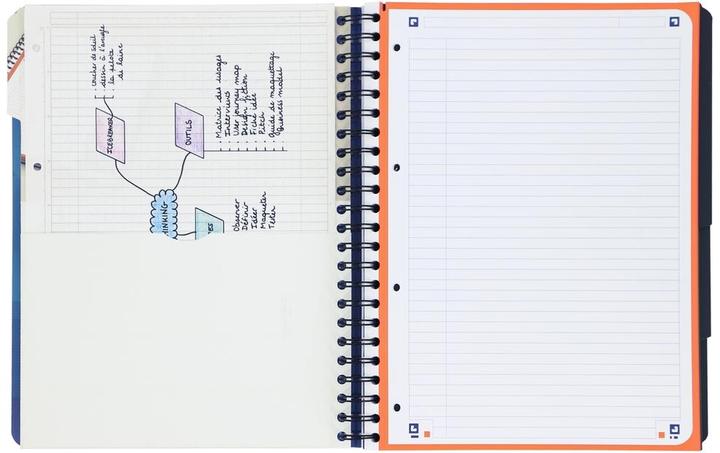 coucher de soleil
dessin à l'envers
la pelote
de laine
ICEBREAKER
OUTILS
Matrice des usages
Interviews
User journey map
Design fiction
Fiche idée
Pitch
Guide de maquettage
Business model
THINKING
ES
Observer
Définir
Idéer
Maqueter
Tester